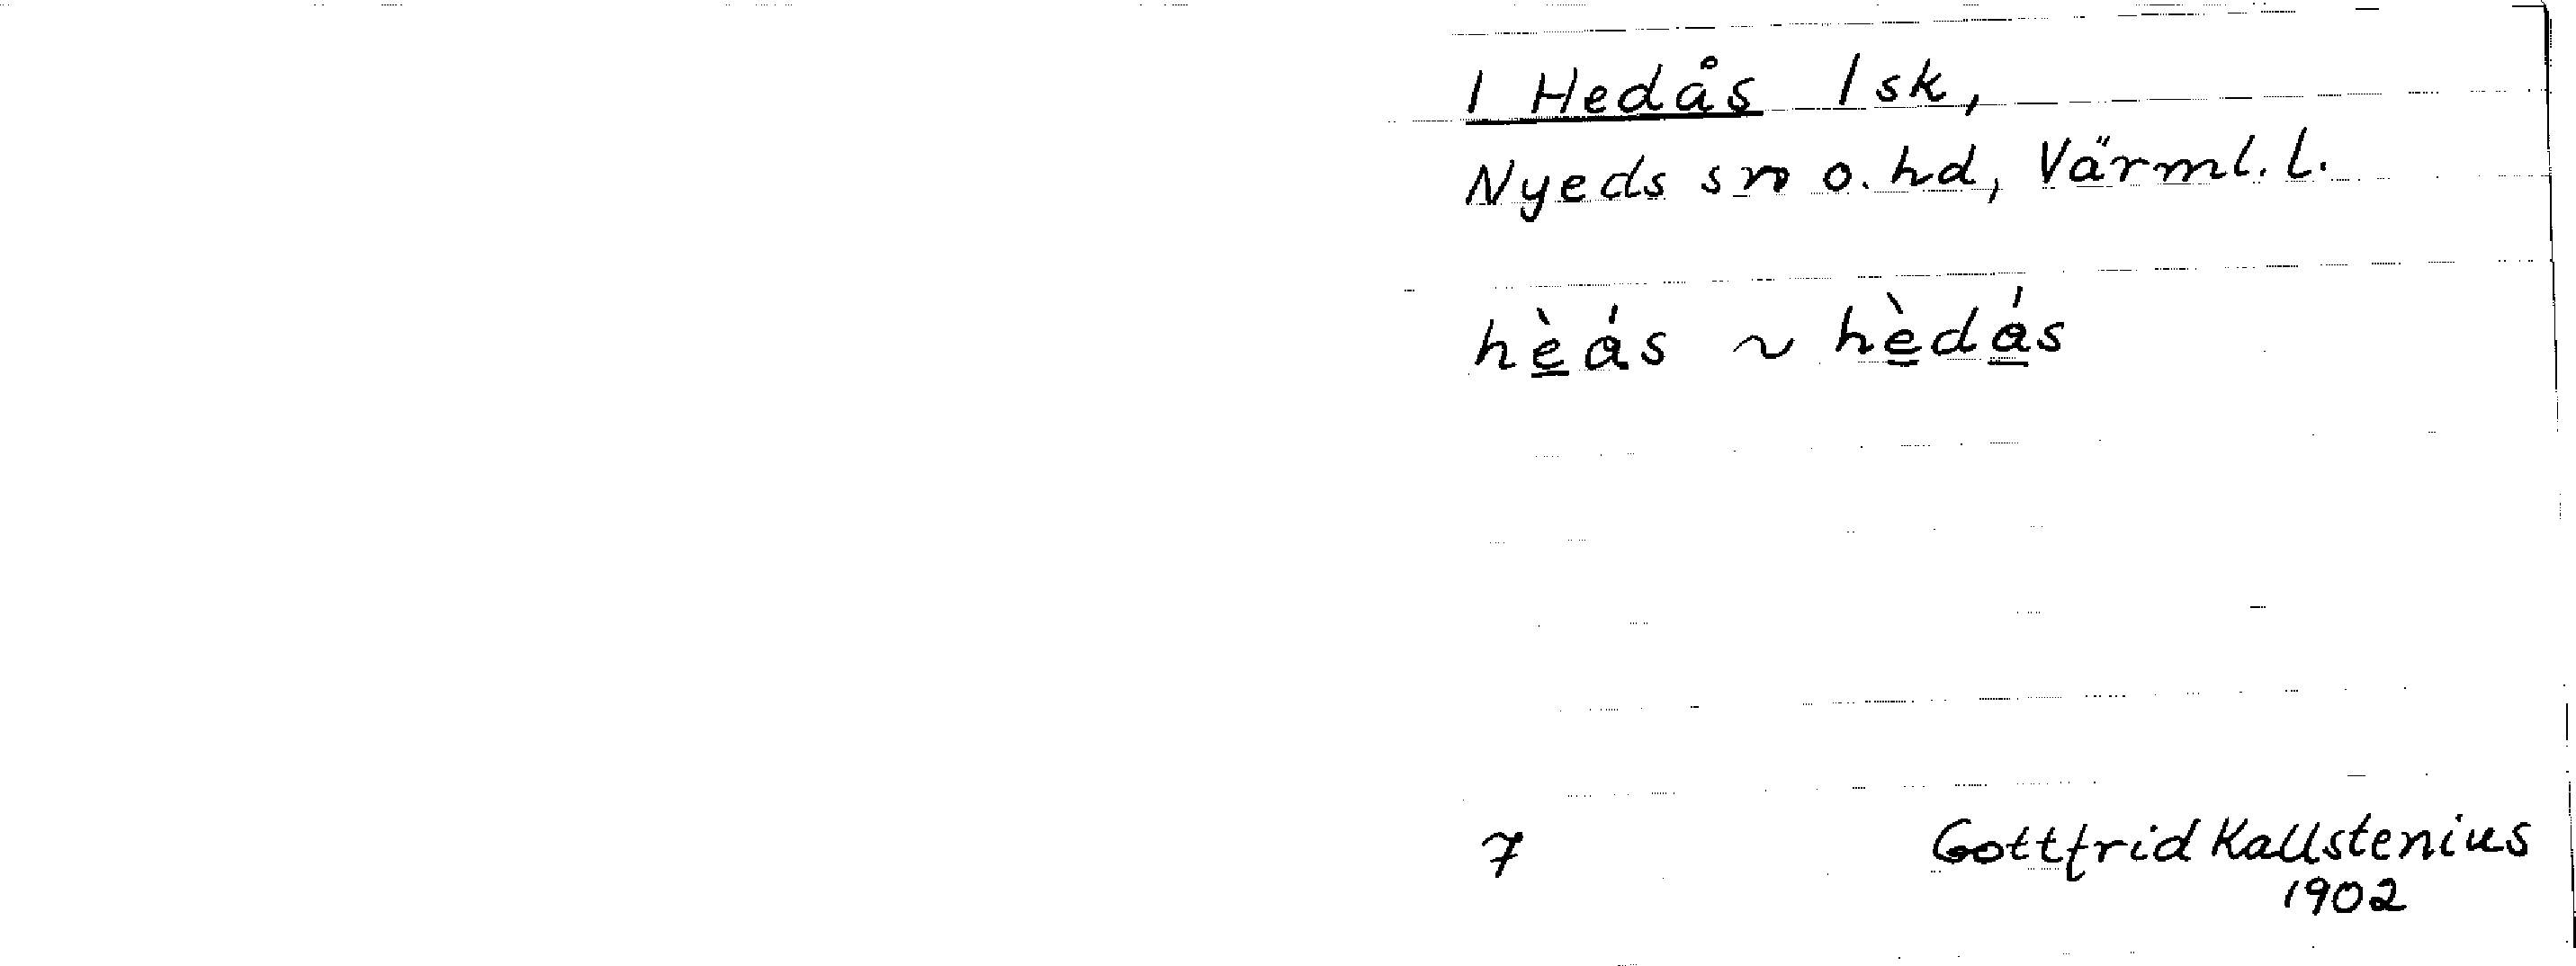 1 Hedås 1 sk,
Nyeds sn o. hd, Värml. l.
hèás ~ hèdás
7 Gottfrid Kallstenius
1902